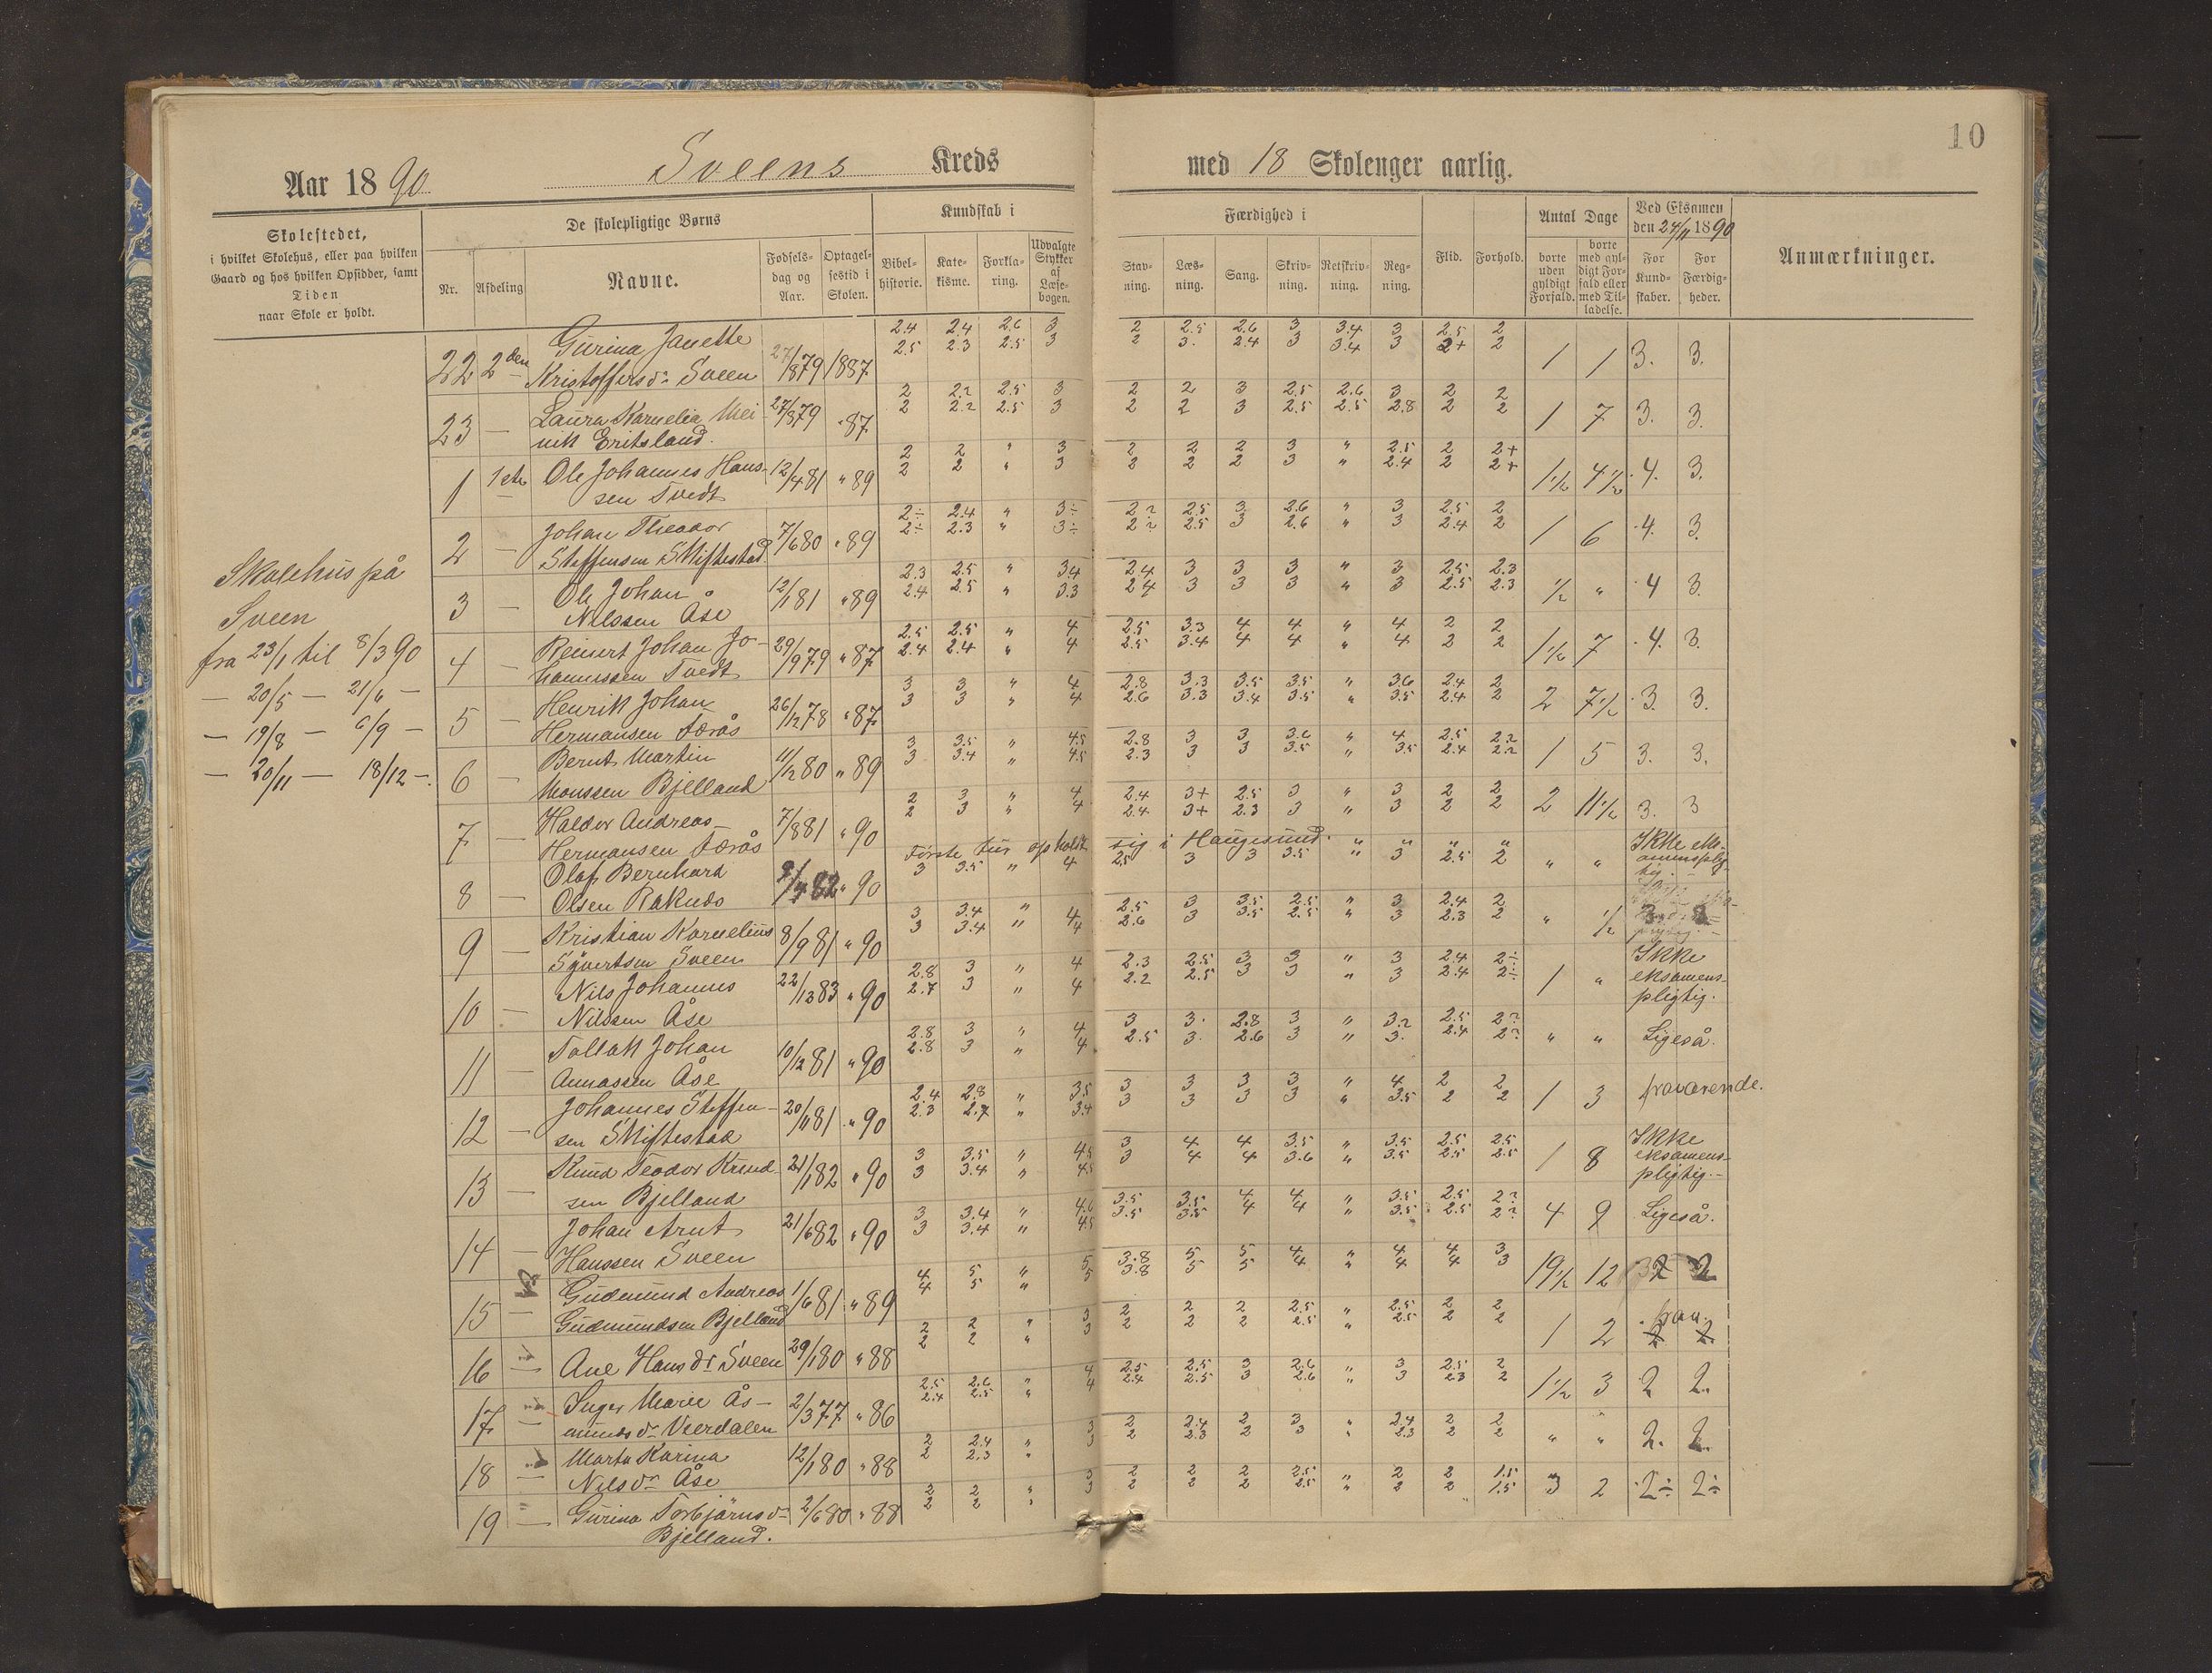 10
Aar 1890
Sveens Kreds
med 18 Skolenger aarlig.
Skolestedet,
i hvilket Skolehus, eller paa hvilken
Gaard og hos hvilken Opsidder, samt
Tiden
naar Skole er holdt.
De skolepligtige Børns
Nr.
Afdeling
Navne.
Fødsels-
dag og
Aar.
Optagel-
sestid i
Skolen.
Kundskab i
Bibel-
historie.
Kate-
kisme.
Forkla-
ring.
Udvalgte
Stykker
af
Læse-
bogen.
Færdighed i
Stav-
ning.
Læs-
ning.
Sang.
Skriv-
ning.
Retskriv-
ning.
Reg-
ning.
Flid.
Forhold.
Antal Dage
borte
uden
gyldigt
Forfald.
borte
med gyl-
digt For-
fald eller
med Til-
ladelse.
Ved Eksamen
den 24/11 1890
For
Kund-
skaber.
For
Færdig-
heder.
Anmærkninger.
Skolehus på
Sveen
fra 23/1 til 8/3 90
— 20/5 — 21/6 —
— 19/8 — 6/9 —
— 20/11 — 18/12 —.
Gurina Janette
22 2den Kristoffersdr Sveen 27/879 1887
2.4 2.4 2.6 3 2 2.5 2.6 3 3.4 3 2.5 2
2.5 2.3 2.5 3 2 3. 2.4 3 3.4 3 2+ 2 1 1 3. 3.
Laura Kornelia Mei
23 — nik Eritsland. 27/879 " 87
2 2.2 2.5 3 2 2 3 2.5 2.6 3 2 2
2 2.2 2.5 3 2 2 3 2.5 2.5 2.8 2 2 1 7 3. 3.
1 1ste Ole Johannes Hans-
sen Tvedt 12/481 " 89
2 2 " 3 2 2 2 3 " 2.5 2 2+
2 2 " 3 2 2 2 3 " 2.4 2 2+ 1½ 4½ 4. 3.
Johan Theodor
2 — Steffensen Skiftestad 7/680 " 89
2÷ 2.4 " 3÷ 2? 2.5 3 2.6 " 3 2.5 2
2÷ 2.3 " 3÷ 2? 2.5 3 2.6 " 3 2.4 2 1 6 4. 3.
Ole Johan
3 — Nilssen Åse 12/181 " 89
2.3 2.5 " 3.4 2.4 3 3 3 " 3 2.5 2.3
2.4 2.5 " 3.3 2.4 3 3 3 " 3 2.5 2.3 ½ " 4 3.
Reinert Johan Jo-
4 — hannessen Tvedt 29/979 " 87
2.5 2.5 " 4 2.5 3.3 4 4 " 4 2 2
2.4 2.4 " 4 2.5 3.4 4 4 " 4 2 2 1½ 7 4. 3.
Henrik Johan
5 — Hermansen Færås 26/1278 " 87
3 3 " 4 2.8 3.3 3.5 3.5 " 3.6 2.4 2
3 3 " 4 2.6 3.3 3.4 3.5 " 3.5 2.4 2 2 7½ 3. 3.
Bernt Martin
6 — Monssen Bjelland 11/1280 " 89
3 3.5 " 4.5 2.8 3 3 3.6 " 4 2.5 2.2
3 3.4 " 4.5 2.3 3 3 3.5 " 3.5 2.4 2.2 1 5 3. 3.
Haldor Andreas
7 — Hermansen Færås 7/881 " 90
2 3 " 4 2.4 3+ 2.5 3 " 3 2 2
2 3 " 4 2.4 3+ 2.3 3 " 3 2 2 2 11½ 3. 3
Olaf Bernhard
8 — Olsen Rakudo 82 " 90
Første tur opholdt sig i Haugesund. " " " "
3 3.5 " 4 2.5 3 3 3.5 " 3 2.5 2 " "
Ikke eks-
amensplig-
tig. —
Kristian Kornelius
9 — Syvertsen Sveen 8/981 " 90
3 3.4 " 4 2.5 3 3.5 2.5 " 3 2.4 2
3 3.4 " 4 2.6 3 3.5 2.5 " 3 2.3 2 " ½ 3 3
Nils Johannes
10 — Nilssen Åse 22/1283 " 90
2.8 3 " 4 2.3 2.5 3 3 " 3 2.4 2÷
2.7 3 " 4 2.2 2.5 3 3 " 3 2.4 2÷ 1 "
Ikke
eksamens-
pligtig.
Tollak Johan
11 — Annassen Åse 10/1281 " 90
2.8 3 " 4 3 3. 2.8 3 " 3.2 2.5 2?
2.8 3 " 4 2.5 3. 2.6 3 " 3. 2.4 2? " " Ligeså.
Johannes Steffen-
12 — sen Skiftestad 20/1181 " 90
2.4 2.8 " 3.5 3 3 3 3 " 4 2 2
2.3 2.7 " 3.4 3 3 3 3 " 3.5 2 2 1 3 fraværende.
Knud Teodor Knud-
13 — sen Bjelland 21/182 " 90
3 3.5 " 4.5 3 4 4 3.5 " 3.5 2.5 2.5
3 3.4 " 4.5 3 4 4 3.6 " 3.5 2.5 2.5 1 8
Ikke
eksamens-
pligtig. —
Johan Arnt
14 — Hanssen Sveen 21/682 " 90
3 3.4 " 4.6 3.5 3.5 4 4 " 3.5 2.5 2?
3 3.4 " 4.5 3.5 3.5 4 4 " 3.5 2.5 2? 4 9 Ligeså.
Gudmund Andreas
15 — Gudmundsen Bjelland 1/681 " 89
4 5 " 5 3.8 5 5 4 " 4 4 3
4 5 " 5 3.8 5 5 4 " 4 4 3 19½ 12 2 2
16 — Ane Hansdr Sveen 29/180 " 88
2 2 " 3 2 2 2 2.5 " 2.5 2 2
2 2 " 3 2 2 2 2.5 " 2.5 2 2 1 2 frav. 2 2.
Inger Marie Ås-
17 — mundsdr Veerdalen 2/377 " 86
2.5 2.6 " 4 2.5 2.5 3 2.6 " 3 2.5 2
2.4 2.5 " 4 2.4 2.5 3 2.6 " 3 2.3 2 1½ 3 2 2.
Marta Karina
18 — Nilsdr Åse 12/180 " 88
2 2.4 " 3 2 2.4 2 3 " 2.4 2 2
2 2.3 " 3 2 2.3 2 3 " 2.3 2 2 " " 2. 2.
19 — Gurina Torbjørnsdr
Bjelland. 2/680 " 88
2 2 " 3 2 2 2 2.5 " 2 2 1.5
2 2 " 3 2 2 2 2.5 " 2 2 1.5 3 2 2÷ 2÷